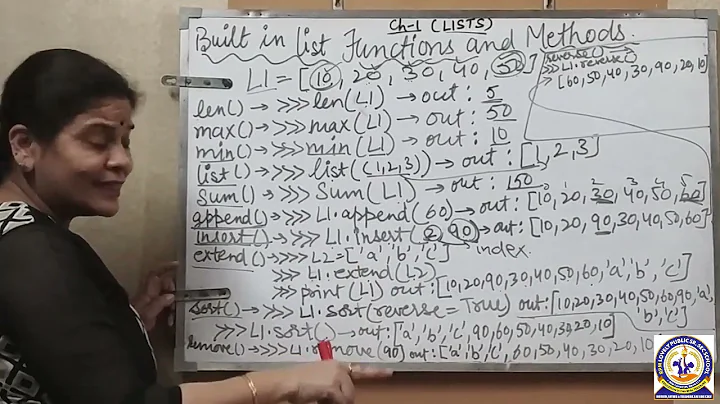 Ch-1 (LISTS)
Built in list Functions and Methods.
L1 = [10, 20, 30, 40, 50]
reverse()
>>> L1.reverse()
> [60,50,40,30,90,20,10]
len() → >>> len(L1) → out: 5
max() → >>> max(L1) → out: 50
min() → >>> min(L1) → out: 10
list() → >>> list((1,2,3)) → out: [1,2,3]
Sum() → >>> Sum(L1) → out: 150
0 1 2 3 4 5
append() → >>> L1.append(60) → out: [10, 20, 30, 40, 50, 60]
insert() → >>> L1.insert(2, 90) → out: [10, 20, 90, 30, 40, 50, 60]
index.
extend() → >>> L2 = ['a', 'b', 'c']
>>> L1.extend(L2)
>>> print(L1) out: [10,20,90,30,40,50,60,'a','b','c']
Sort() → >>> L1.sort(reverse = True) out: [10,20,30,40,50,60,90,'a'
'b','c']
>>> L1.sort() → out: ['a','b','c', 90,60,50,40,30,20,10]
remove() → >>> L1.remove(90) out: ['a','b','c', 60, 50, 40, 30, 20, 10
LOVELY PUBLIC SR. SEC SCHOOL